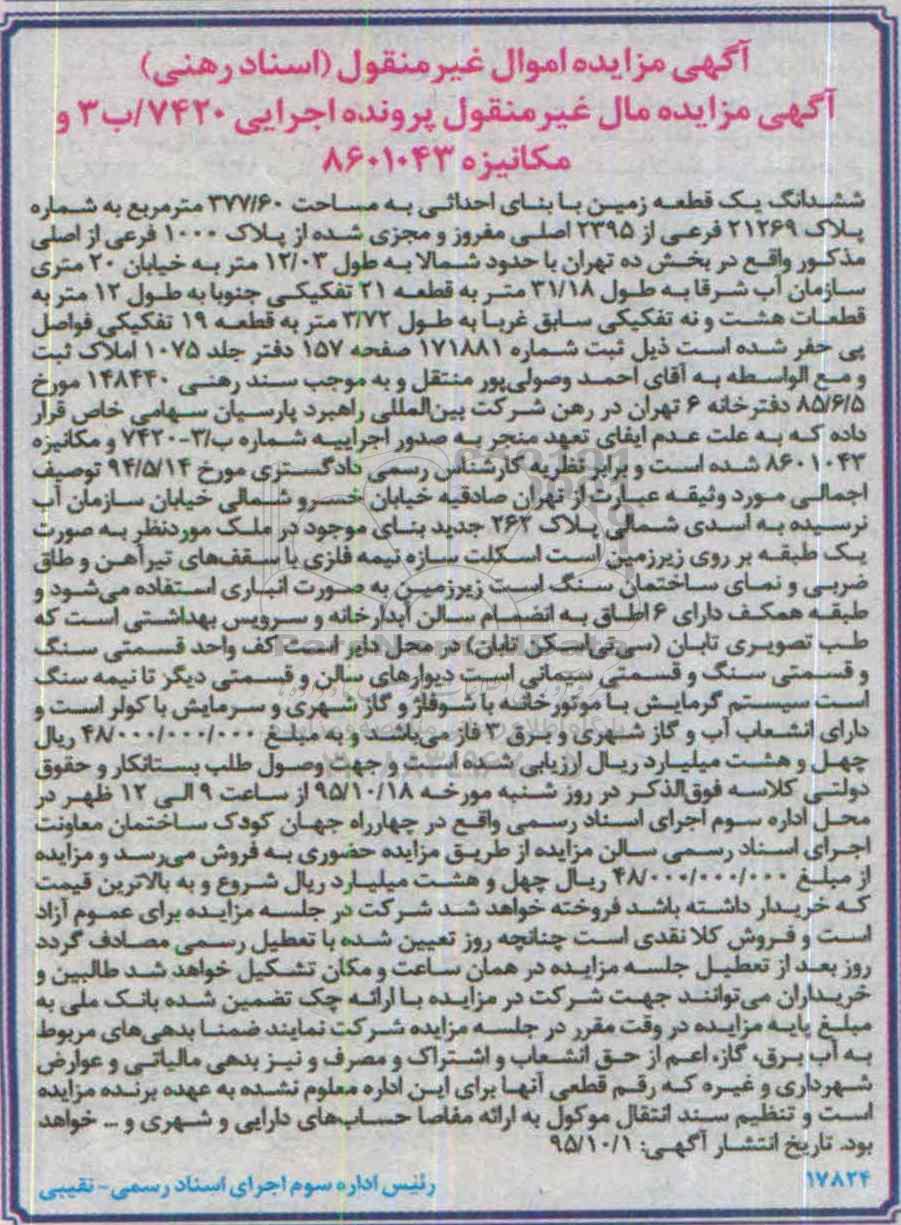 آگهی مزایده اموال غیرمنقول (اسناد رهنی)
آگهی مزایده مال غیرمنقول پرونده اجرایی ۷۴۲۰/ب۳ و
مکانیزه ۸۶۰۱۰۴۳
ششدانگ یک قطعه زمین با بنای احداثی به مساحت ۳۷۷/۶۰ مترمربع به شماره
پلاک ۲۱۲۶۹ فرعی از ۲۳۹۵ اصلی مفروز و مجزی شده از پلاک ۱۰۰۰ فرعی از اصلی
مذکور واقع در بخش ده تهران با حدود شمالا به طول ۱۲/۰۳ متر به خیابان ۲۰ متری
سازمان آب شرقا به طول ۳۱/۱۸ متر به قطعه ۲۱ تفکیکی جنوبا به طول ۱۲ متر به
قطعات هشت و نه تفکیکی سابق غربا به طول ۳/۷۲ متر به قطعه ۱۹ تفکیکی فواصل
پی حفر شده است ذیل ثبت شماره ۱۷۱۸۸۱ صفحه ۱۵۷ دفتر جلد ۱۰۷۵ املاک ثبت
و مع الواسطه به آقای احمد وصولی‌پور منتقل و به موجب سند رهنی ۱۴۸۴۴۰ مورخ
۸۵/۶/۵ دفترخانه ۶ تهران در رهن شرکت بین‌المللی راهبرد پارسیان سهامی خاص قرار
داده که به علت عدم ایفای تعهد منجر به صدور اجراییه شماره ب/۳-۷۴۲۰ و مکانیزه
۸۶۰۱۰۴۳ شده است و برابر نظریه کارشناس رسمی دادگستری مورخ ۹۴/۵/۱۴ توصیف
اجمالی مورد وثیقه عبارت از تهران صادقیه خیابان خسرو شمالی خیابان سازمان آب
نرسیده به اسدی شمالی پلاک ۲۶۲ جدید بنای موجود در ملک موردنظر به صورت
یک طبقه بر روی زیرزمین است اسکلت سازه نیمه فلزی با سقف‌های تیرآهن و طاق
ضربی و نمای ساختمان سنگ است زیرزمین به صورت انباری استفاده می‌شود و
طبقه همکف دارای ۶ اطاق به انضمام سالن آبدارخانه و سرویس بهداشتی است که
طب تصویری تابان (سی‌تی‌اسکن تابان) در محل دایر است کف واحد قسمتی سنگ
و قسمتی سنگ و قسمتی سیمانی است دیوارهای سالن و قسمتی دیگر تا نیمه سنگ
است سیستم گرمایش با موتورخانه با شوفاژ و گاز شهری و سرمایش با کولر است و
دارای انشعاب آب و گاز شهری و برق ۳ فاز می‌باشد و به مبلغ ۴۸/۰۰۰/۰۰۰/۰۰۰ ریال
چهل و هشت میلیارد ریال ارزیابی شده است و جهت وصول طلب بستانکار و حقوق
دولتی کلاسه فوق‌الذکر در روز شنبه مورخه ۹۵/۱۰/۱۸ از ساعت ۹ الی ۱۲ ظهر در
محل اداره سوم اجرای اسناد رسمی واقع در چهارراه جهان کودک ساختمان معاونت
اجرای اسناد رسمی سالن مزایده از طریق مزایده حضوری به فروش می‌رسد و مزایده
از مبلغ ۴۸/۰۰۰/۰۰۰/۰۰۰ ریال چهل و هشت میلیارد ریال شروع و به بالاترین قیمت
که خریدار داشته باشد فروخته خواهد شد شرکت در جلسه مزایده برای عموم آزاد
است و فروش کلا نقدی است چنانچه روز تعیین شده با تعطیل رسمی مصادف گردد
روز بعد از تعطیل جلسه مزایده در همان ساعت و مکان تشکیل خواهد شد طالبین و
خریداران می‌توانند جهت شرکت در مزایده با ارائه چک تضمین شده بانک ملی به
مبلغ پایه مزایده در وقت مقرر در جلسه مزایده شرکت نمایند ضمنا بدهی‌های مربوط
به آب برق، گاز، اعم از حق انشعاب و اشتراک و مصرف و نیز بدهی مالیاتی و عوارض
شهرداری و غیره که رقم قطعی آنها برای این اداره معلوم نشده به عهده برنده مزایده
است و تنظیم سند انتقال موکول به ارائه مفاصا حساب‌های دارایی و شهری و ... خواهد
بود. تاریخ انتشار آگهی: ۹۵/۱۰/۱
۱۷۸۲۴ رئیس اداره سوم اجرای اسناد رسمی - نقیبی